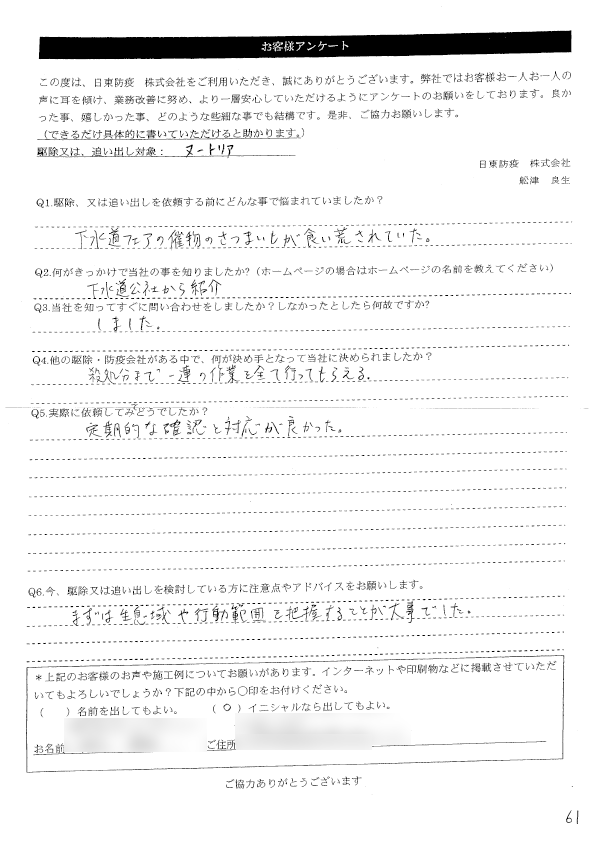 お客様アンケート
この度は、日東防疫　株式会社をご利用いただき、誠にありがとうございます。弊社ではお客様お一人お一人の
声に耳を傾け、業務改善に努め、より一層安心していただけるようにアンケートのお願いをしております。良か
った事、嬉しかった事、どのような些細な事でも結構です。是非、ご協力お願いします。
（できるだけ具体的に書いていただけると助かります。）
駆除又は、追い出し対象： ヌートリア
日東防疫　株式会社
舩津　良生
Q1.駆除、又は追い出しを依頼する前にどんな事で悩まれていましたか？
下水道フェアの催物のさつまいもが食い荒されていた。
Q2.何がきっかけで当社の事を知りましたか?（ホームページの場合はホームページの名前を教えてください）
下水道公社から紹介
Q3.当社を知ってすぐに問い合わせをしましたか？しなかったとしたら何故ですか?
しました。
Q4.他の駆除・防疫会社がある中で、何が決め手となって当社に決められましたか？
殺処分まで一連の作業を全て行ってもらえる。
Q5.実際に依頼してみてどうでしたか？
定期的な確認と対応が良かった。
Q6.今、駆除又は追い出しを検討している方に注意点やアドバイスをお願いします。
まずは生息域や行動範囲を把握することが大事でした。
＊上記のお客様のお声や施工例についてお願いがあります。インターネットや印刷物などに掲載させていただ
いてもよろしいでしょうか？下記の中から〇印をお付けください。
（　　）名前を出してもよい。　（ ○ ）イニシャルなら出してもよい。
お名前　ご住所
ご協力ありがとうございます
61